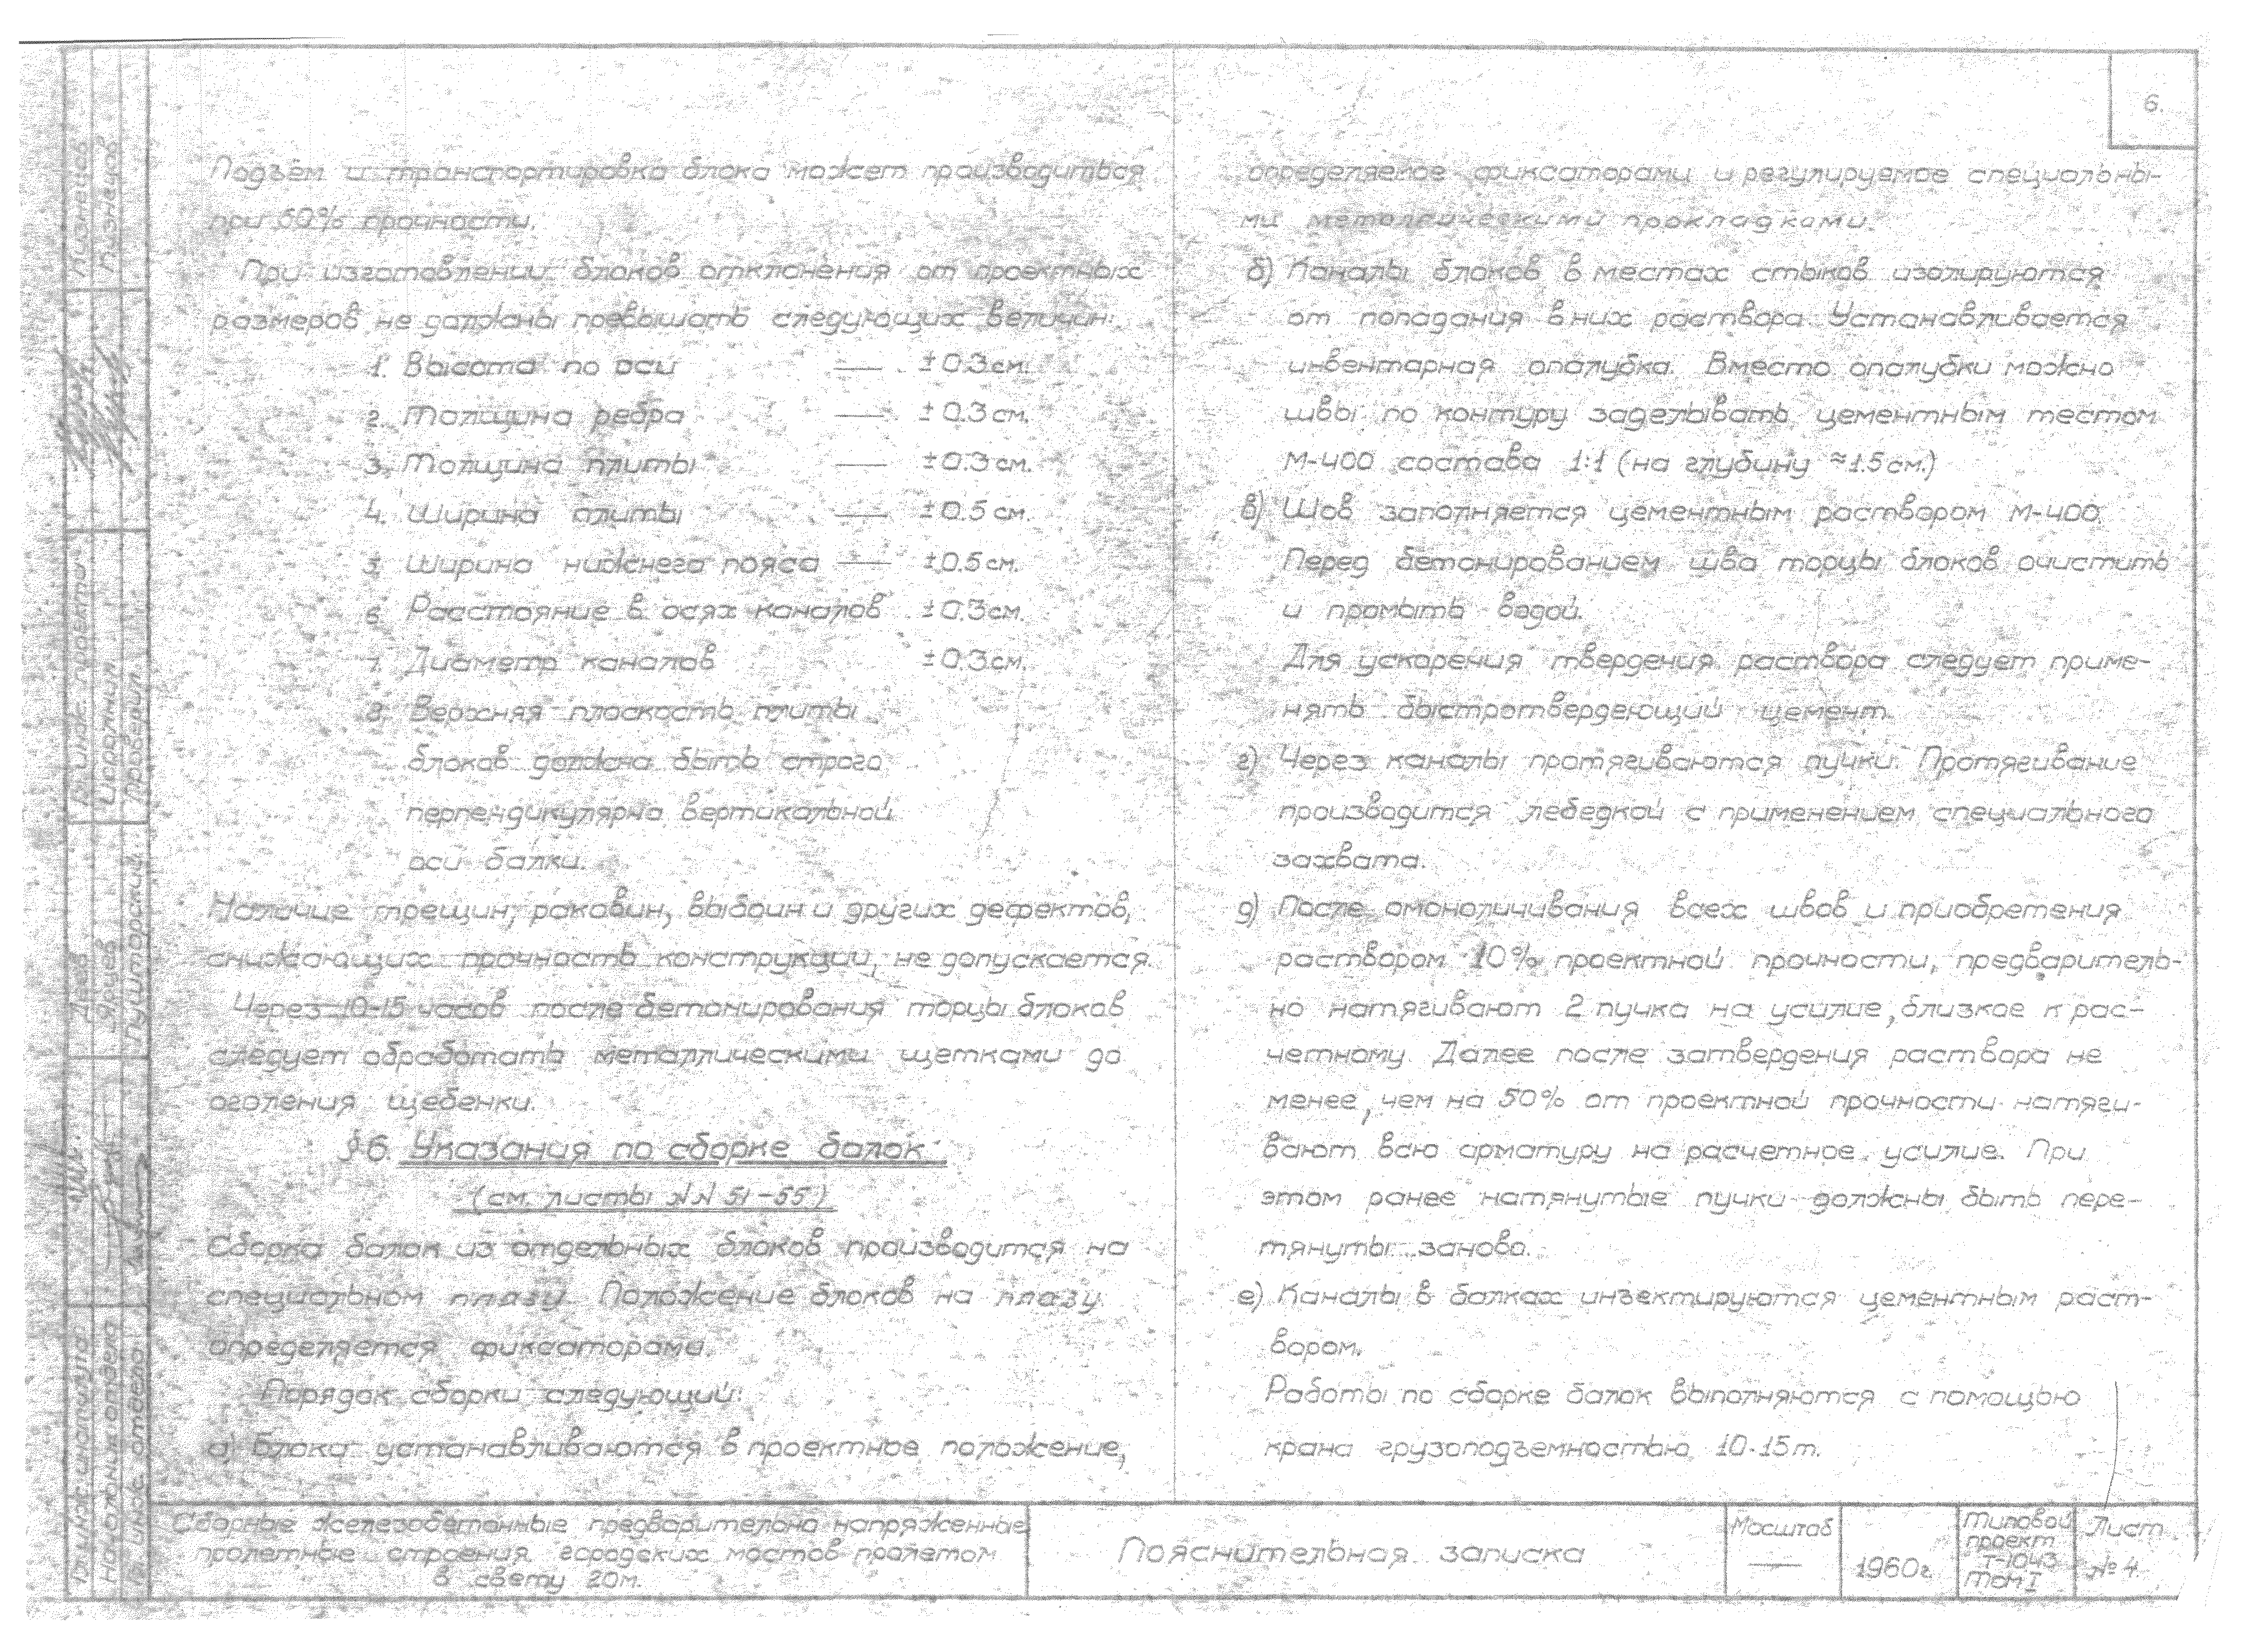 6.
Подъём и транспортировка блока может производиться
при 60% прочности.
При изготовлении блоков отклонения от проектных
размеров не должны превышать следующих величин:
1. Высота по оси — ±0.3 см.
2. Толщина ребра — ±0.3 см.
3. Толщина плиты — ±0.3 см.
4. Ширина плиты — ±0.5 см.
5. Ширина нижнего пояса — ±0.5 см.
6. Расстояние в осях каналов ±0.3 см.
7. Диаметр каналов ±0.3 см.
8. Верхняя плоскость плиты
блоков должна быть строго
перпендикулярна вертикальной
оси балки.
Наличие трещин, раковин, выбоин и других дефектов,
снижающих прочность конструкции, не допускается.
Через 10-15 часов после бетонирования торцы блоков
следует обработать металлическими щетками до
оголения щебенки.
§6. Указания по сборке балок.
(см. листы NN 51-55)
Сборка балок из отдельных блоков производится на
специальном плазу. Положение блоков на плазу
определяется фиксаторами.
Порядок сборки следующий:
а) Блоки устанавливаются в проектное положение,
определяемое фиксаторами и регулируемое специальны-
ми металлическими прокладками.
б) Каналы блоков в местах стыков изолируются
от попадания в них раствора. Устанавливается
инвентарная опалубка. Вместо опалубки можно
швы по контуру заделывать цементным тестом
М-400 состава 1:1 (на глубину ≈1.5 см.)
в) Шов заполняется цементным раствором М-400.
Перед бетонированием шва торцы блоков очистить
и промыть водой.
Для ускорения твердения раствора следует приме-
нять быстротвердеющий цемент.
г) Через каналы протягиваются пучки. Протягивание
производится лебедкой с применением специального
захвата.
д) После омоноличивания всех швов и приобретения
раствором 10% проектной прочности, предваритель-
но натягивают 2 пучка на усилие, близкое к рас-
четному. Далее после затвердения раствора не
менее, чем на 50% от проектной прочности натяги-
вают всю арматуру на расчетное усилие. При
этом ранее натянутые пучки должны быть пере-
тянуты заново.
е) Каналы в балках инъектируются цементным раст-
вором.
Работы по сборке балок выполняются с помощью
крана грузоподъемностью 10-15 т.
Гл. инж. института
Начальник отдела
Гл. инж. отдела
Деев
Ярцев
Пушторский
Гл. инж. проекта
Проверил
Кузнецов
Сборные железобетонные предварительно напряженные
пролетные строения городских мостов пролетом
в свету 20 м.
Пояснительная записка
Масштаб
—
1960г.
Типовой
проект
Т-1043
Том I
Лист
№ 4